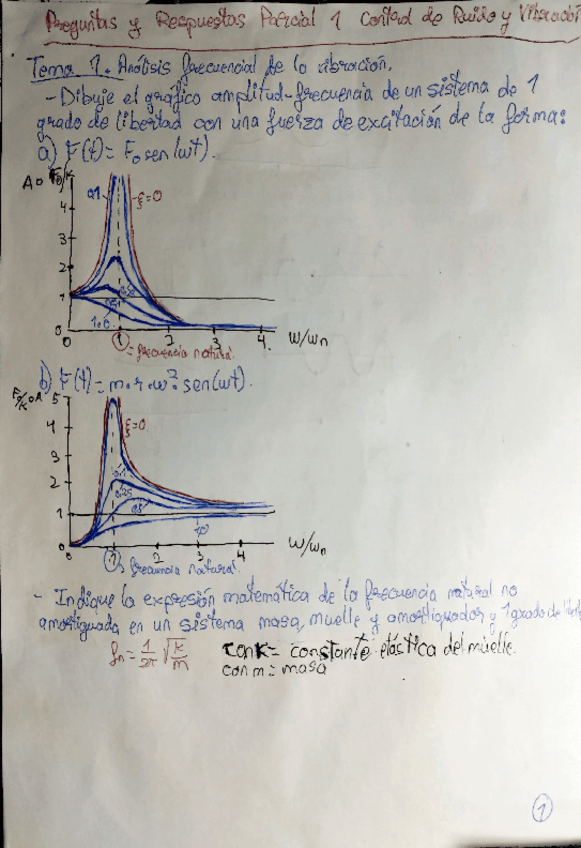 Preguntas y Respuestas Parcial 1 Control de Ruido y Vibración
Tema 1. Análisis frecuencial de la vibración.
- Dibuje el gráfico amplitud-frecuencia de un sistema de 1
grado de libertad con una fuerza de excitación de la forma:
a) F(t) = F₀ sen(wt).
4
3
2
1
0
0.1
ξ=0
1.0
0 1 2 3 4. w/wn
= frecuencia natural.
b) F(t) = m.r.w². sen(wt).
5
4
3
2
1
0
ξ=0
0.1
0.25
0.5
1.0
1 2 3 4 w/wn
frecuencia natural.
- Indique la expresión matemática de la frecuencia natural no
amortiguada en un sistema masa, muelle y amortiguador y 1 grado de
fn = 1/2π √k/m con k = constante elástica del muelle.
con m = masa
1